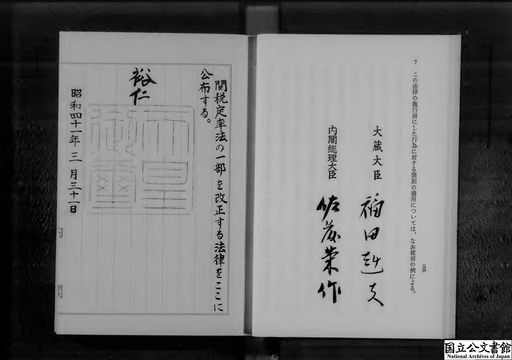 7 この法律の施行前にした行為に対する罰則の適用については、なお従前の例による。
大蔵大臣 福田赳夫
内閣総理大臣 佐藤栄作
関税定率法の一部を改正する法律をここに
公布する。
裕仁
昭和四十一年三月三十一日
国立公文書館
National Archives of Japan